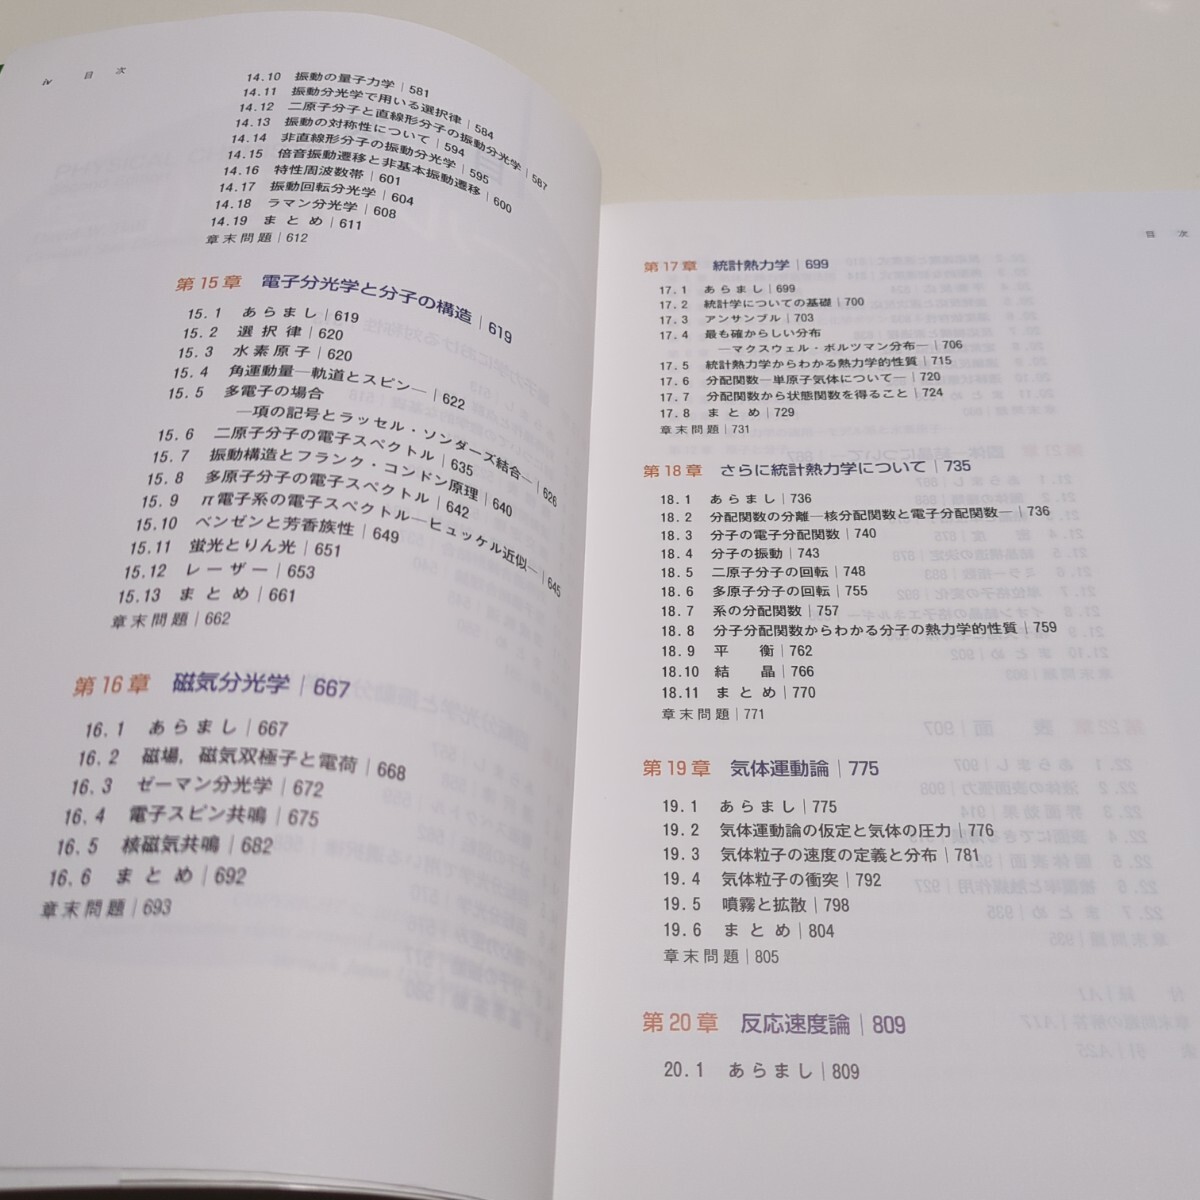 iv 目 次
14.10 振動の量子力学|581
14.11 振動分光学で用いる選択律|584
14.12 二原子分子と直線形分子の振動分光学|587
14.13 振動の対称性について|594
14.14 非直線形分子の振動分光学|595
14.15 倍音振動遷移と非基本振動遷移|600
14.16 特性周波数帯|601
14.17 振動回転分光学|604
14.18 ラマン分光学|608
14.19 まとめ|611
章末問題|612
第15章 電子分光学と分子の構造|619
15.1 あらまし|619
15.2 選択律|620
15.3 水素原子|620
15.4 角運動量―軌道とスピン―|622
15.5 多電子の場合
―項の記号とラッセル・ソンダーズ結合―|626
15.6 二原子分子の電子スペクトル|635
15.7 振動構造とフランク・コンドン原理|640
15.8 多原子分子の電子スペクトル|642
15.9 π電子系の電子スペクトル―ヒュッケル近似―|645
15.10 ベンゼンと芳香族性|649
15.11 蛍光とりん光|651
15.12 レーザー|653
15.13 まとめ|661
章末問題|662
第16章 磁気分光学|667
16.1 あらまし|667
16.2 磁場，磁気双極子と電荷|668
16.3 ゼーマン分光学|672
16.4 電子スピン共鳴|675
16.5 核磁気共鳴|682
16.6 まとめ|692
章末問題|693
目 次
第17章 統計熱力学|699
17.1 あらまし|699
17.2 統計学についての基礎|700
17.3 アンサンブル|703
17.4 最も確からしい分布
―マクスウェル・ボルツマン分布―|706
17.5 統計熱力学からわかる熱力学的性質|715
17.6 分配関数―単原子気体について―|720
17.7 分配関数から状態関数を得ること|724
17.8 まとめ|729
章末問題|731
第18章 さらに統計熱力学について|735
18.1 あらまし|736
18.2 分配関数の分離―核分配関数と電子分配関数―|736
18.3 分子の電子分配関数|740
18.4 分子の振動|743
18.5 二原子分子の回転|748
18.6 多原子分子の回転|755
18.7 系の分配関数|757
18.8 分子分配関数からわかる分子の熱力学的性質|759
18.9 平 衡|762
18.10 結 晶|766
18.11 まとめ|770
章末問題|771
第19章 気体運動論|775
19.1 あらまし|775
19.2 気体運動論の仮定と気体の圧力|776
19.3 気体粒子の速度の定義と分布|781
19.4 気体粒子の衝突|792
19.5 噴霧と拡散|798
19.6 まとめ|804
章末問題|805
第20章 反応速度論|809
20.1 あらまし|809